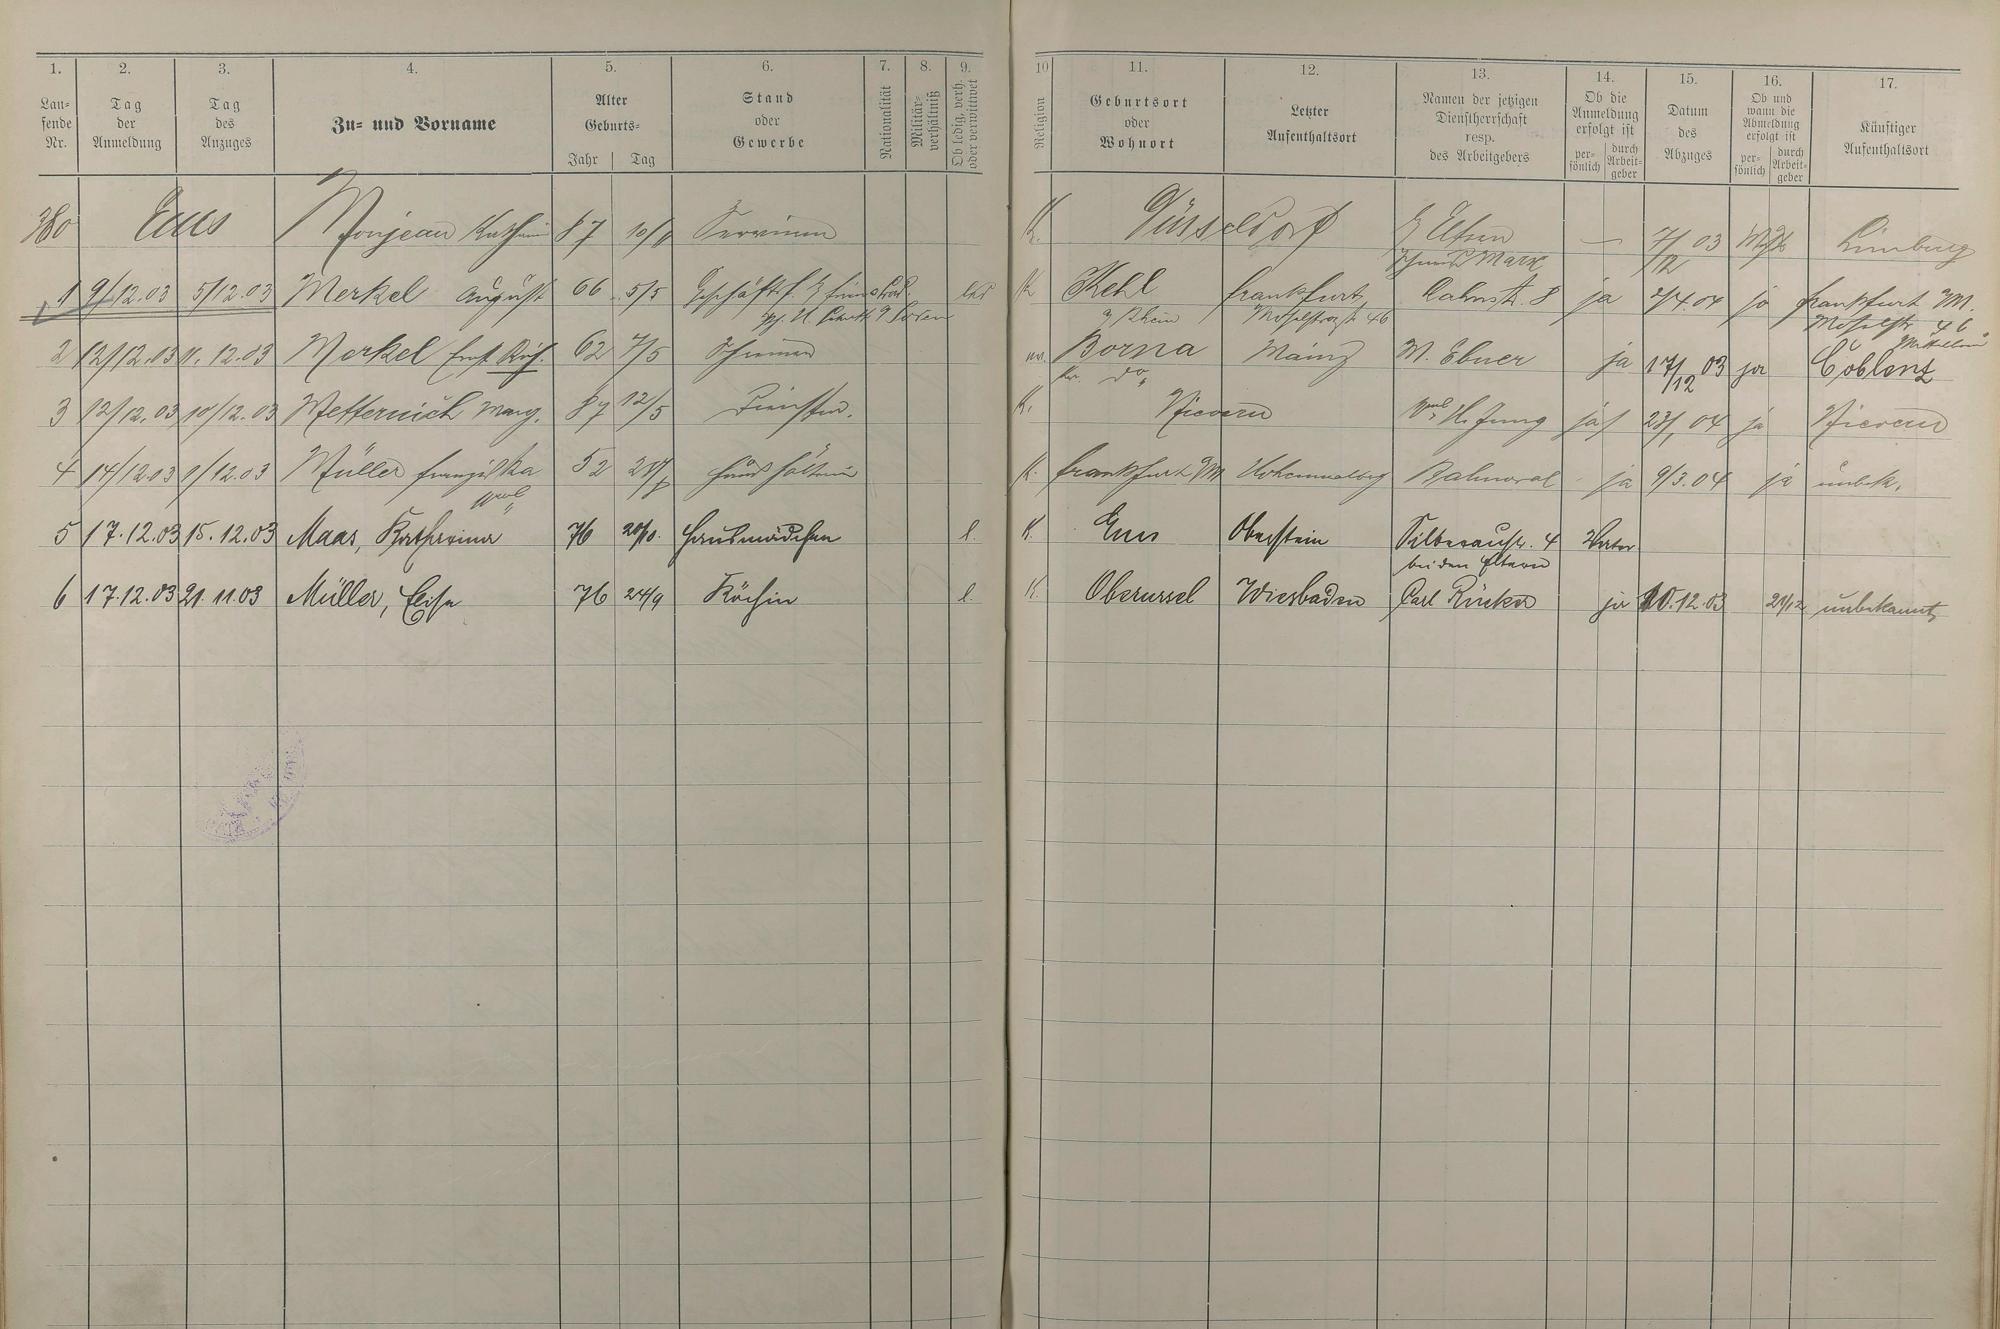 1. 2. 3. 4. 5. 6. 7. 8. 9. 10 11. 12. 13. 14. 15. 16. 17.
Lau-
fende
Nr.
Tag
der
Anmeldung
Tag
des
Anzuges
Zu- und Vorname
Alter
Geburts-
Jahr Tag
Stand
oder
Gewerbe
Nationalität
Militär-
verhältniß
Ob ledig, verh.
oder verwittwet
Religion
Geburtsort
oder
Wohnort
Letzter
Aufenthaltsort
Namen der jetzigen
Dienstherrschaft
resp.
des Arbeitgebers
Ob die
Anmeldung
erfolgt ist
per-
sönlich
durch
Arbeit-
geber
Datum
des
Abzuges
Ob und
wann die
Abmeldung
erfolgt ist
per-
sönlich
durch
Arbeit-
geber
Künftiger
Aufenthaltsort
380 Ems Monjean 87 K. Düsseldorf — 7/12 03 Limburg
Marx
1 9/12.03 5/12.03 Merkel August 66 5/5 K Kehl Frankfurt 8 ja 2/4.04 ja Frankfurt a/M.
a/Rhein Moselstraße 46 Moselstr. 46
2 12/12.03 11.12.03 Merkel Ernst 62 7/5 Borna Mainz M. Ebner ja 17/12 03 ja Coblenz
3 12/12.03 10/12.03 Metternich Marg. 87 12/5 K. Nievern H. Jung ja 04 ja Nievern
4 14/12.03 9/12.03 Müller Franziska 52 Haushälterin K. Frankfurt a/M Balmoral ja 9/3.04 ja unbek.
5 17.12.03 15.12.03 Maas, Katharina 76 20/10. Hausmädchen l. K. Ems Oberstein Silberaustr. 4
bei den Eltern
6 17.12.03 21.11.03 Müller, Elise 76 24/9 Köchin l. K. Oberursel Wiesbaden Carl Rücker ja 20.12.03 21/12 unbekannt